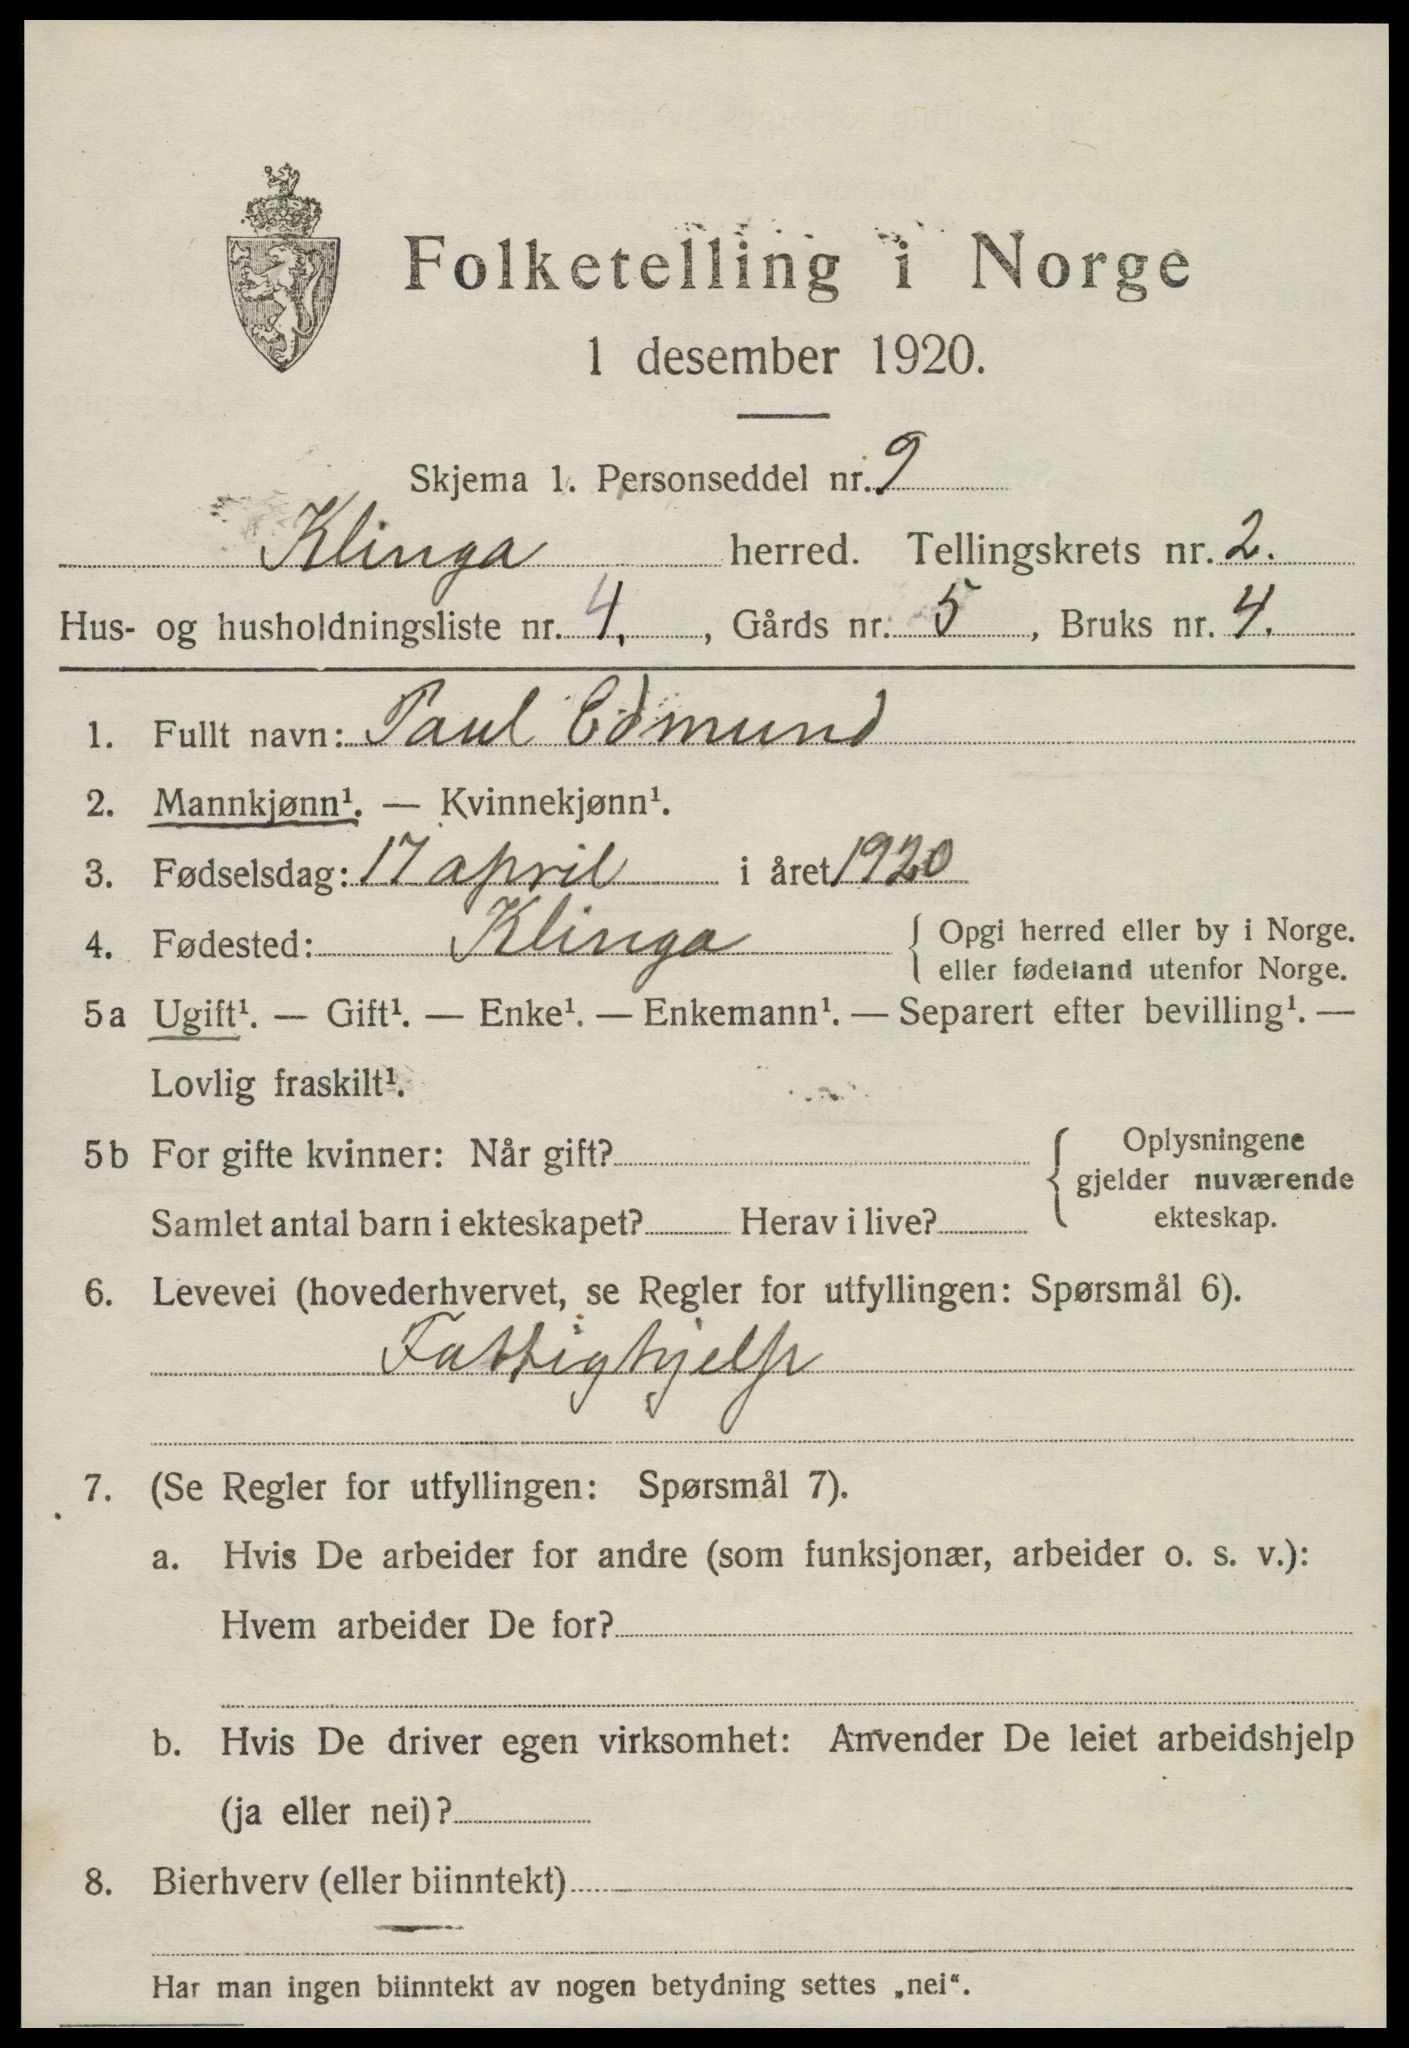 Folketelling i Norge
1 desember 1920.
Skjema 1. Personseddel nr. 9
Klinga herred. Tellingskrets nr. 2.
Hus- og husholdningsliste nr. 4., Gårds nr. 5, Bruks nr. 4.
1. Fullt navn: Paul Edmund
2. Mannkjønn¹. — Kvinnekjønn¹.
3. Fødselsdag: 17 april i året 1920
4. Fødested: Klinga { Opgi herred eller by i Norge.
eller fødeland utenfor Norge.
5a Ugift¹. — Gift¹. — Enke¹. — Enkemann¹. — Separert efter bevilling¹. —
Lovlig fraskilt¹.
5b For gifte kvinner: Når gift? { Oplysningene
gjelder nuværende
Samlet antal barn i ekteskapet? Herav i live? ekteskap.
6. Levevei (hovederhvervet, se Regler for utfyllingen: Spørsmål 6).
Fattighjelp
7. (Se Regler for utfyllingen: Spørsmål 7).
a. Hvis De arbeider for andre (som funksjonær, arbeider o. s. v.):
Hvem arbeider De for?
b. Hvis De driver egen virksomhet: Anvender De leiet arbeidshjelp
(ja eller nei)?
8. Bierhverv (eller biinntekt)
Har man ingen biinntekt av nogen betydning settes „nei“.